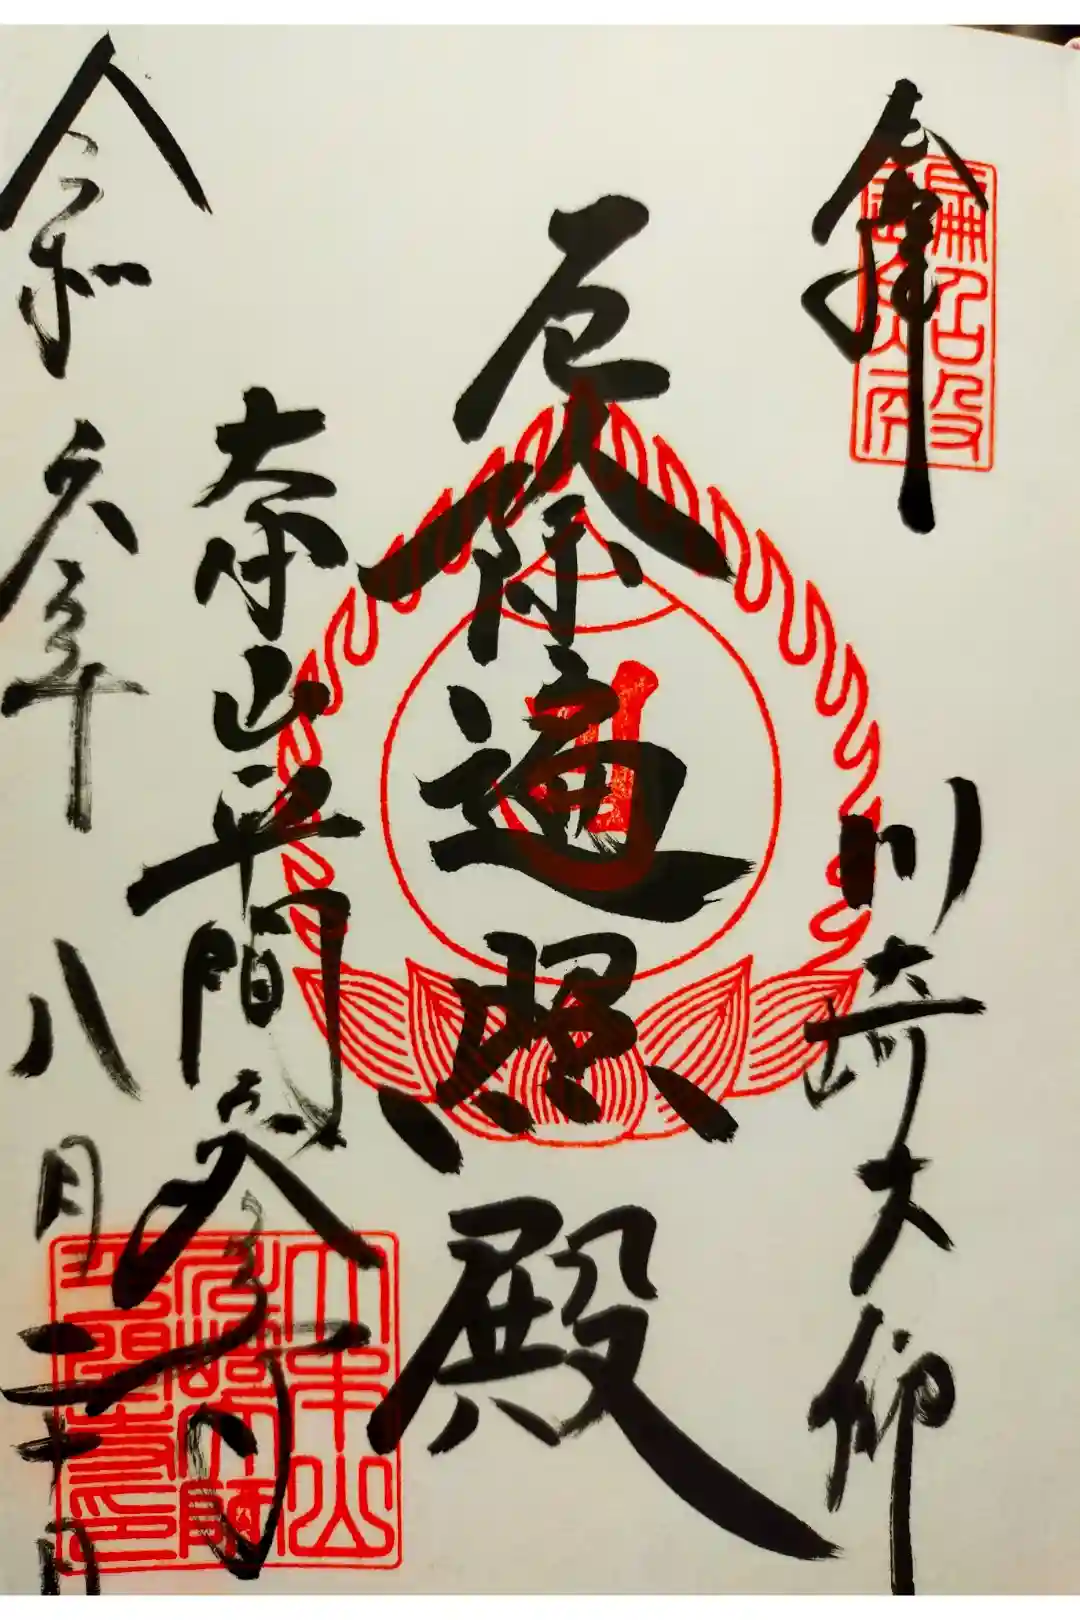 奉拝
川崎大師
厄除遍照殿
大本山平間寺
令和六年八月二十日
大本山
川崎大師
平間寺印